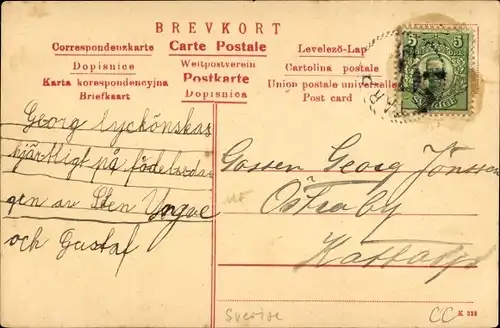 BREVKORT
Correspondenzkarte
Carte Postale
Levelező-Lap
Dopisnice
Weltpostverein
Cartolina postale
Karta korespondencyjna
Postkarte
Union postale universelle
Briefkaart
Dopisnica
Post card
5 5
Georg lyckönskas
hjärtligt på födelseda-
gen av Sten Yngve
och Gustaf
Gossen Georg Jönsson
Östraby
Sverige
CC
K 233